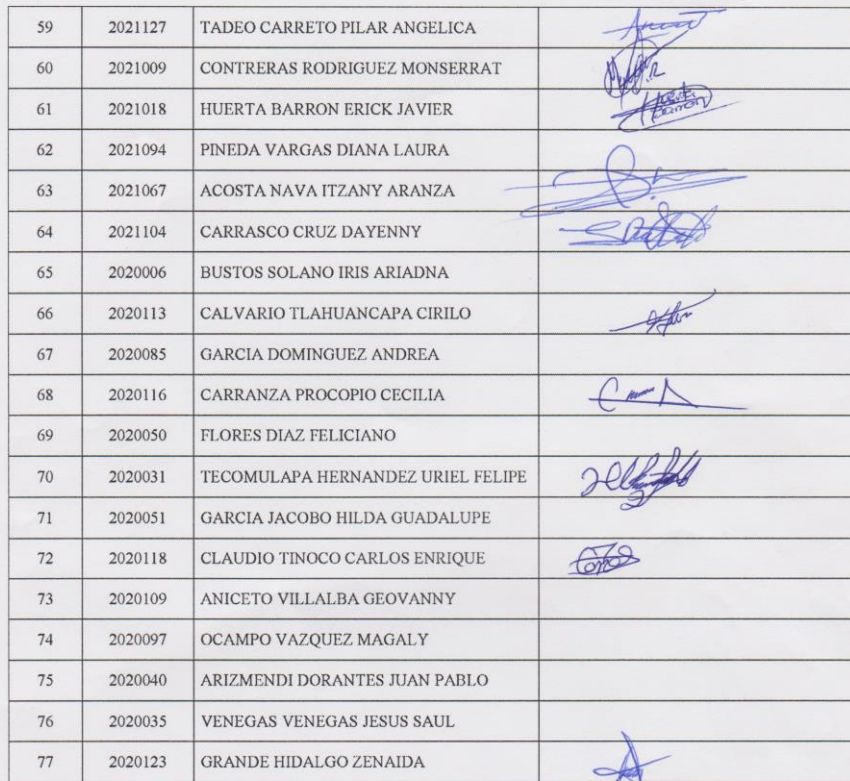 59 2021127 TADEO CARRETO PILAR ANGELICA
60 2021009 CONTRERAS RODRIGUEZ MONSERRAT
61 2021018 HUERTA BARRON ERICK JAVIER Huerta Barron
62 2021094 PINEDA VARGAS DIANA LAURA
63 2021067 ACOSTA NAVA ITZANY ARANZA
64 2021104 CARRASCO CRUZ DAYENNY
65 2020006 BUSTOS SOLANO IRIS ARIADNA
66 2020113 CALVARIO TLAHUANCAPA CIRILO
67 2020085 GARCIA DOMINGUEZ ANDREA
68 2020116 CARRANZA PROCOPIO CECILIA
69 2020050 FLORES DIAZ FELICIANO
70 2020031 TECOMULAPA HERNANDEZ URIEL FELIPE
71 2020051 GARCIA JACOBO HILDA GUADALUPE
72 2020118 CLAUDIO TINOCO CARLOS ENRIQUE
73 2020109 ANICETO VILLALBA GEOVANNY
74 2020097 OCAMPO VAZQUEZ MAGALY
75 2020040 ARIZMENDI DORANTES JUAN PABLO
76 2020035 VENEGAS VENEGAS JESUS SAUL
77 2020123 GRANDE HIDALGO ZENAIDA